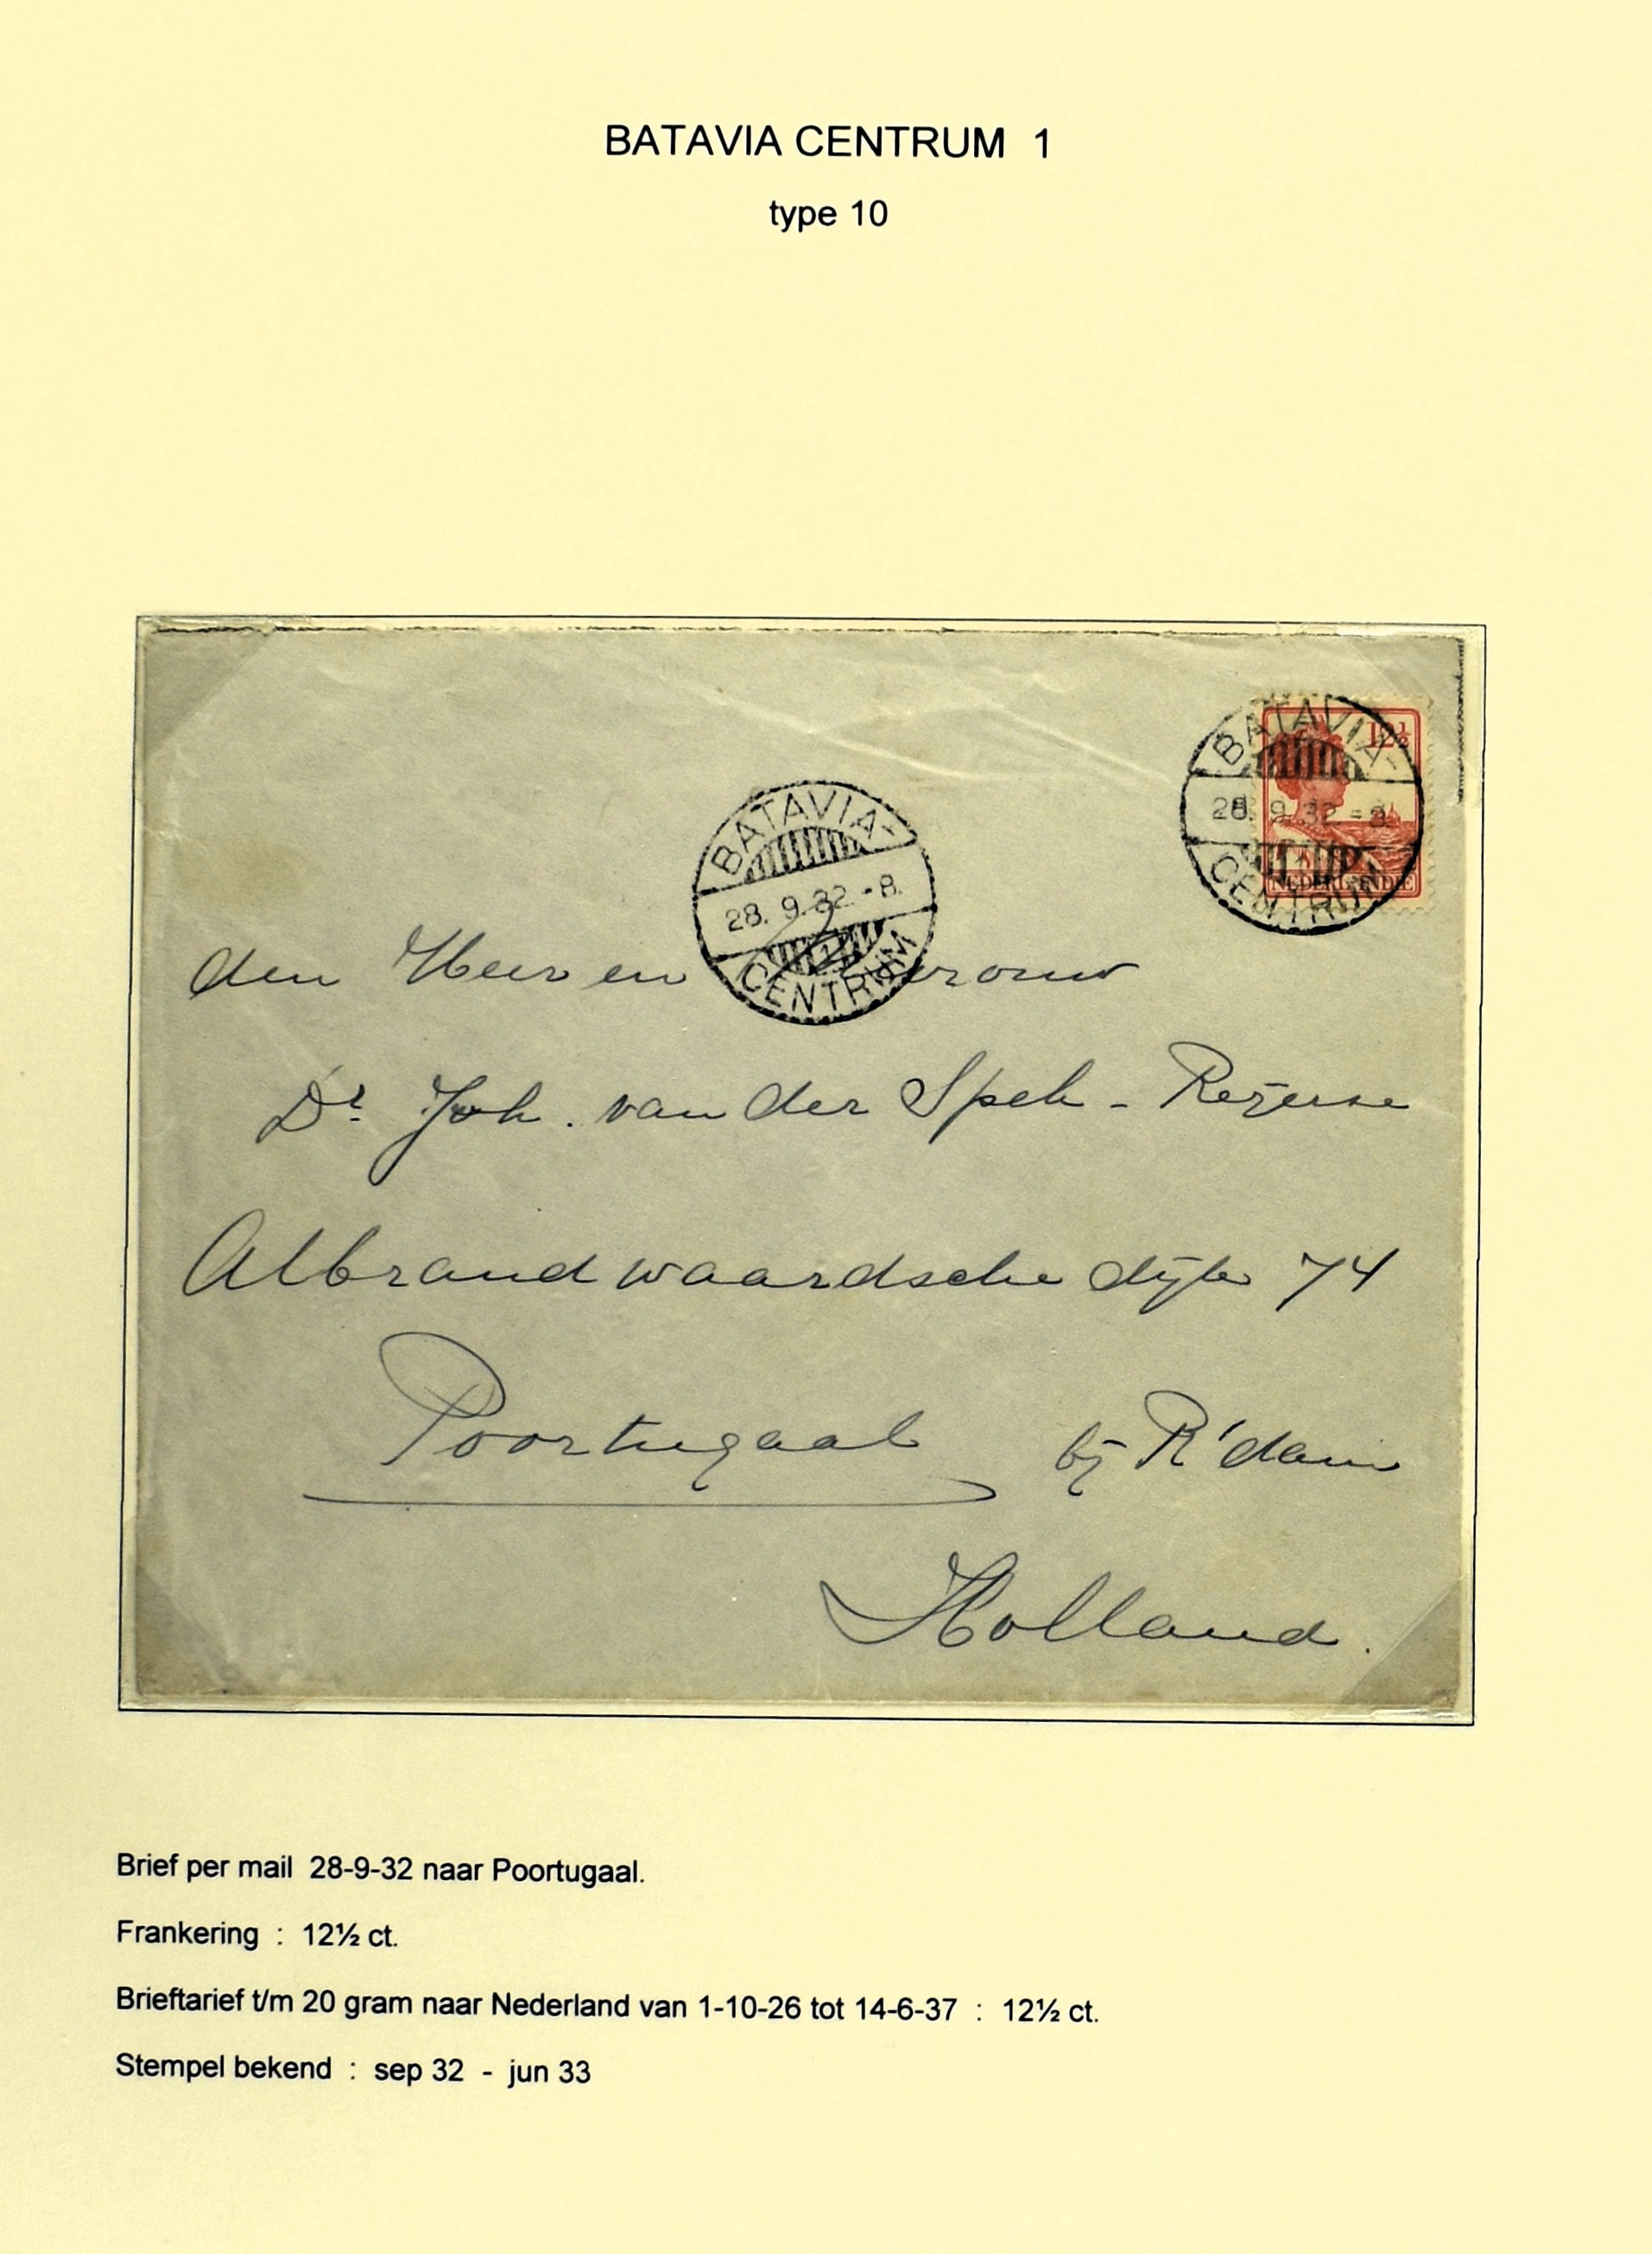 BATAVIA CENTRUM 1
type 10
12½
NED. INDIE
BATAVIA-
28. 9. 32. - 8.
CENTRUM
BATAVIA-
28. 9. 32. - 8.
1
CENTRUM
den Heer en Mevrouw
Dr Joh. van der Spek - Rezerse
Albrandwaardsche dijk 74
Poortugaal bij R'dam
Holland.
Brief per mail 28-9-32 naar Poortugaal.
Frankering : 12½ ct.
Brieftarief t/m 20 gram naar Nederland van 1-10-26 tot 14-6-37 : 12½ ct.
Stempel bekend : sep 32 - jun 33